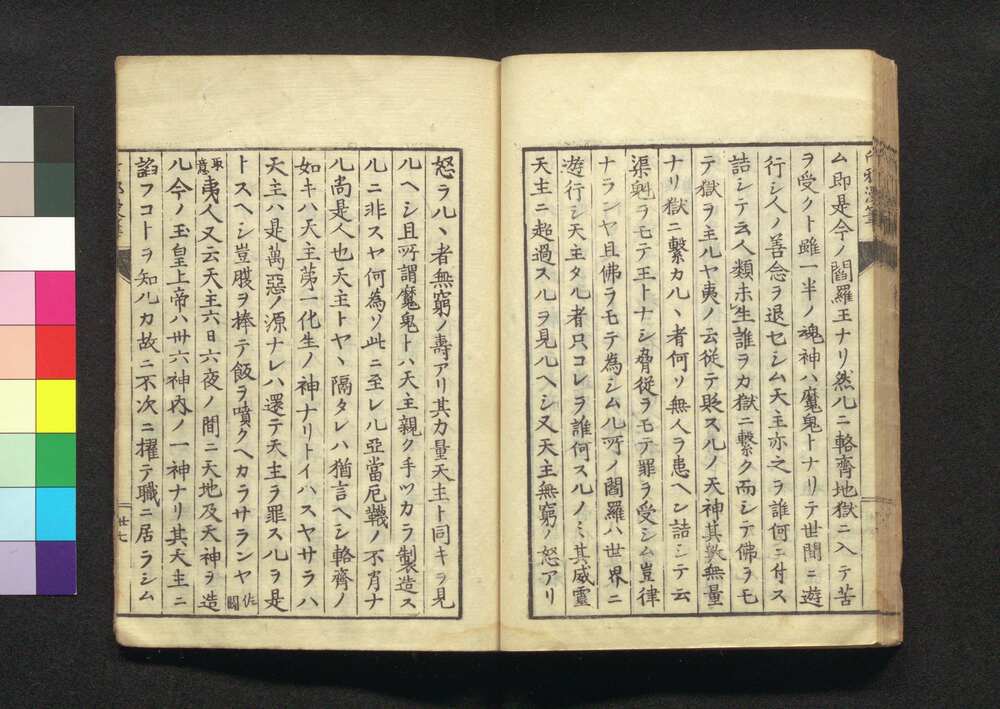 ム即是今ノ閻羅王ナリ然ルニ輅齊地獄ニ入テ苦
ヲ受クト雖一半ノ魂神ハ魔鬼トナリテ世間ニ遊
行シ人ノ善念ヲ退セシム天主亦之ヲ誰何ニ付ス
詰シテ云人類未生誰ヲカ獄ニ繋ク而シテ佛ヲモ
テ獄ヲ主ルヤ夷ノ云従テ貶スルノ天神其数無量
ナリ獄ニ繋カルヽ者何ソ無人ヲ患ヘン詰シテ云
渠魁ヲモテ王トナシ脅従ヲモテ罪ヲ受シム豈律
ナランヤ且佛ヲモテ為シムル所ノ閻羅ハ世界ニ
遊行シ天主タル者只コレヲ誰何スルノミ其威靈
天主ニ超過スルヲ見ルヘシ又天主無窮ノ怒アリ
怒ラルヽ者無窮ノ壽アリ其力量天主ト同キヲ見
ルヘシ且所謂魔鬼トハ天主親ク手ツカラ製造ス
ルニ非スヤ何為ソ此ニ至レル亞當厄襪ノ不肖ナ
ル尚是人也天主トヤヽ隔タレハ猶言ヘシ輅齊ノ
如キハ天主第一化生ノ神ナリトイハスヤサラハ
天主ハ是萬惡ノ源ナレハ還テ天主ヲ罪スルヲ是
トスヘシ豈腹ヲ捧テ飯ヲ噴クヘカラサランヤ
夷人又云天主六日六夜ノ間ニ天地及天神ヲ造
ル今ノ玉皇上帝ハ卅六神内ノ一神ナリ其天主ニ
諂フコトヲ知ルカ故ニ不次ニ擢テ職ニ居ラシム
廿七